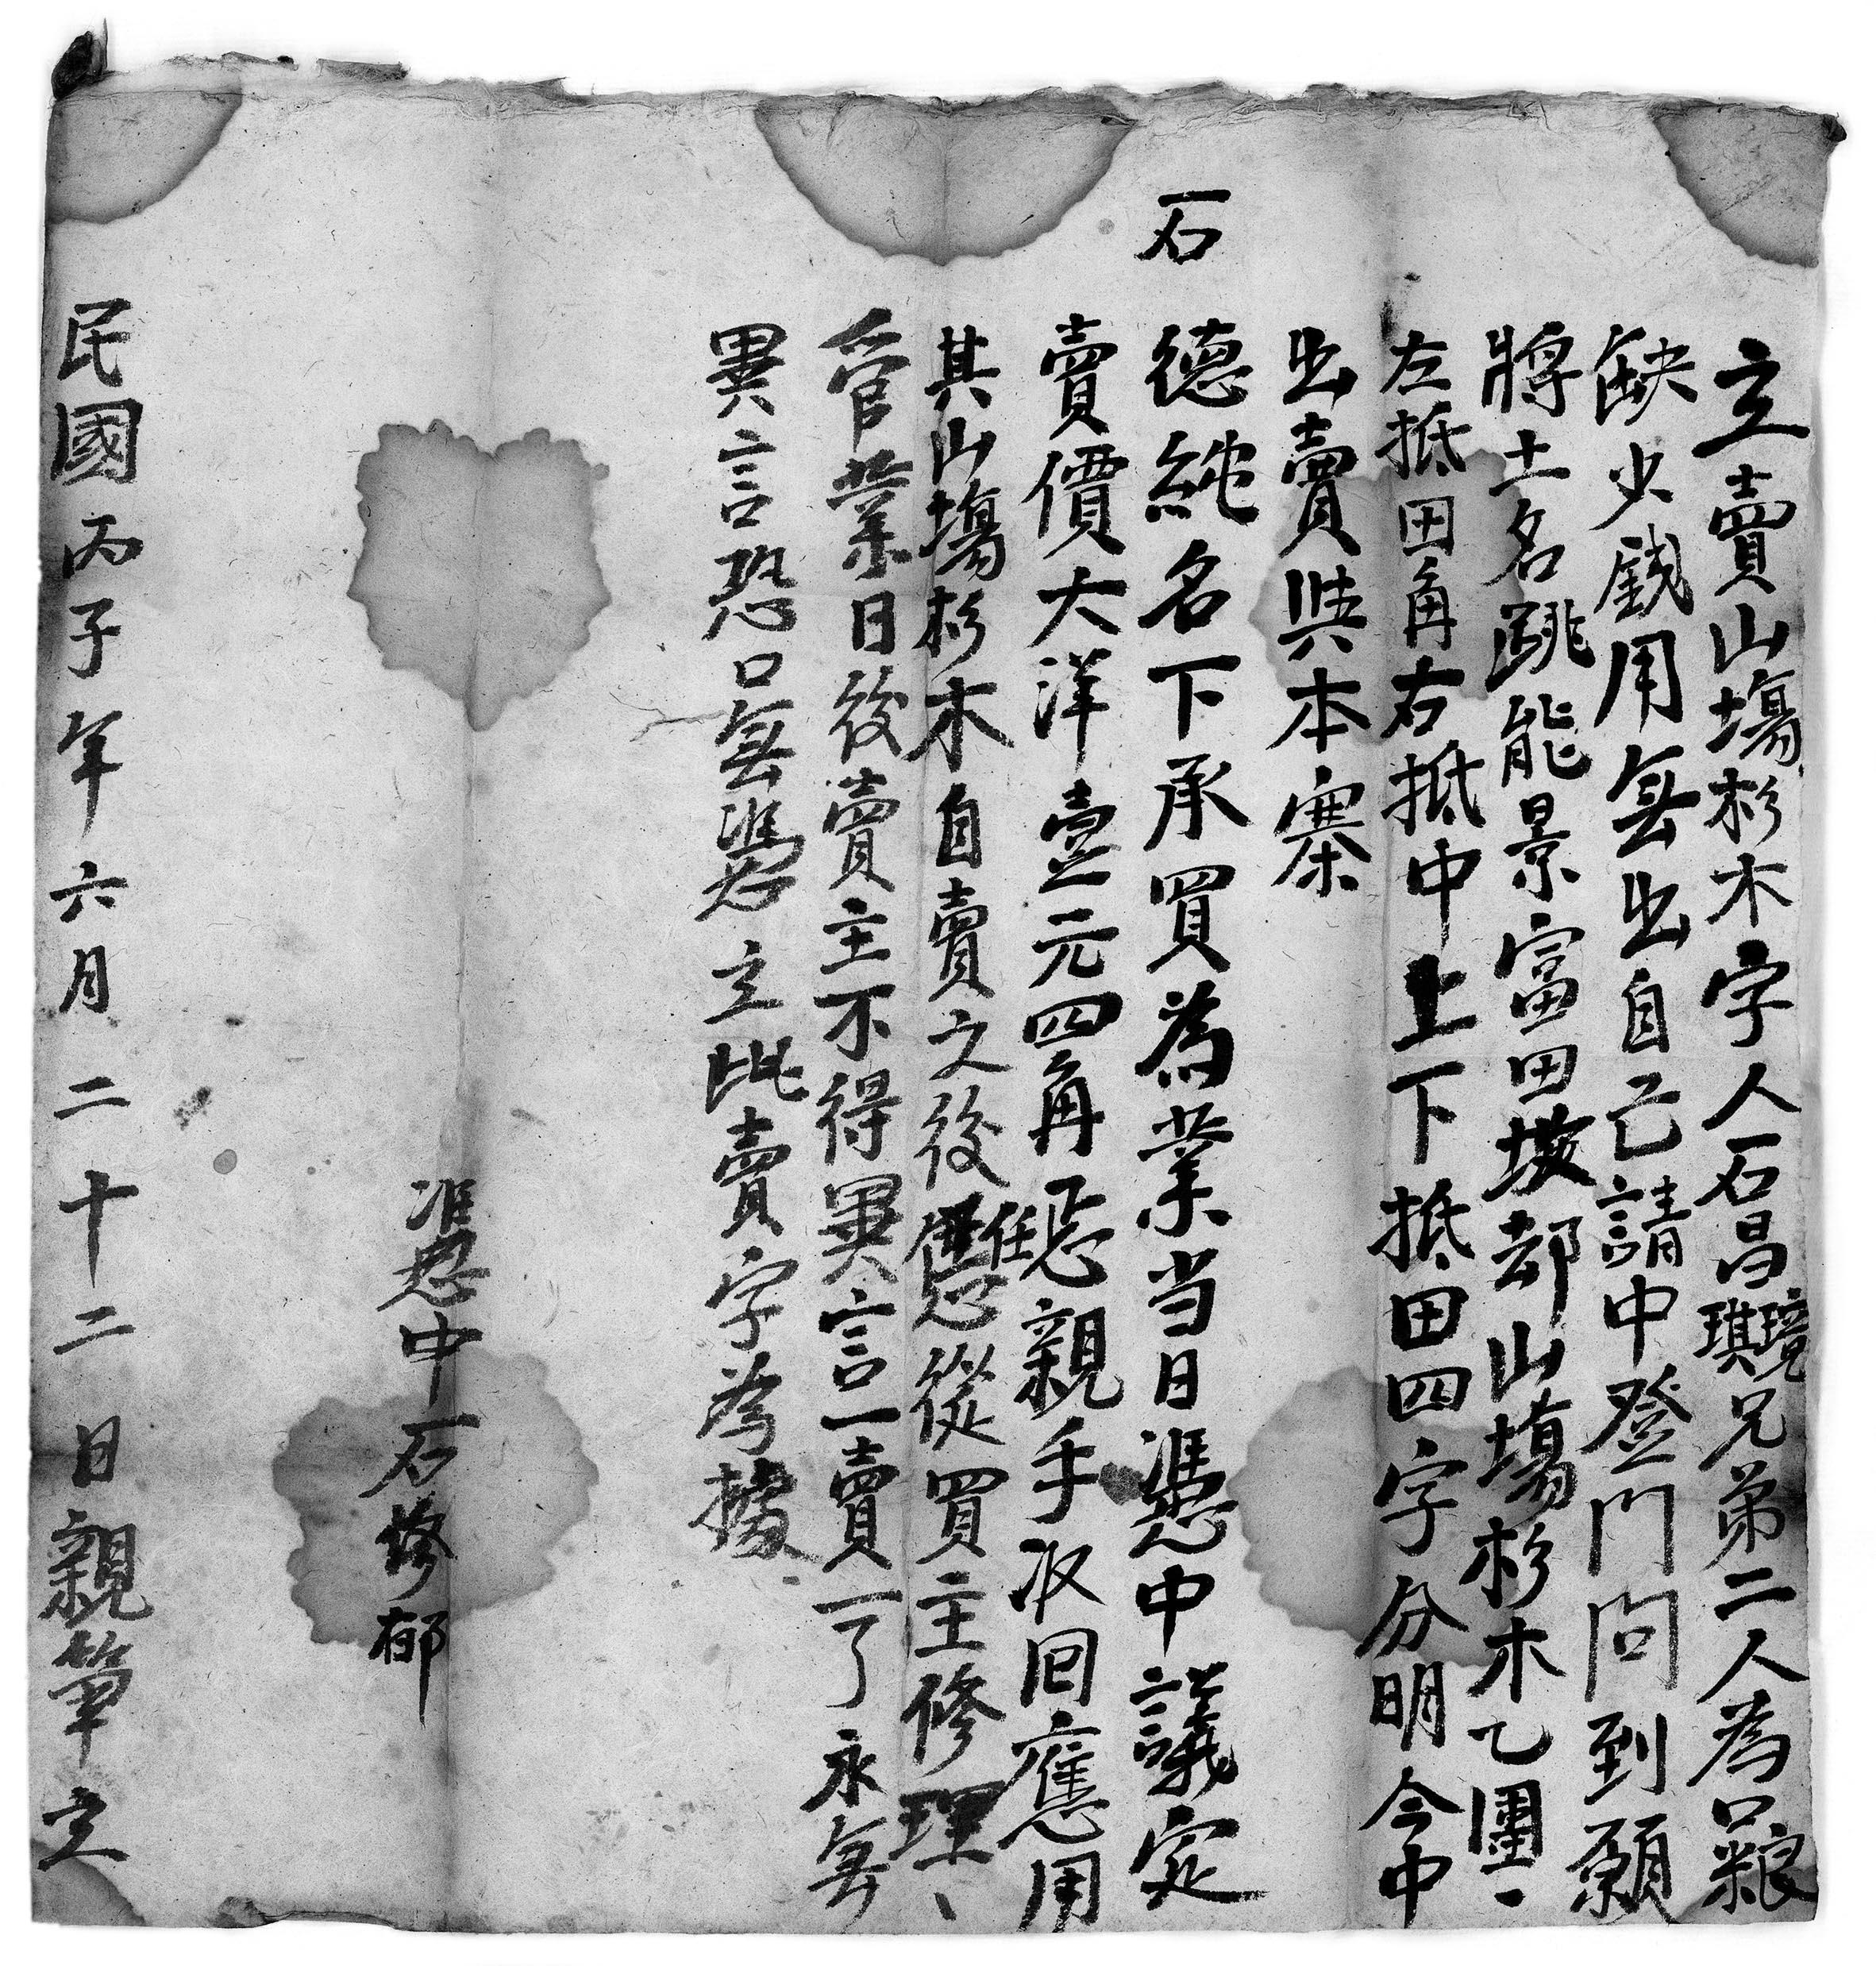 立賣山塲杉木字人石昌琪璄兄弟二人為口粮
缺少戲用無出自己請中登門問到願
將土名跳能景富田坡却山塲杉木乙團一
左抵田角右抵中上下抵田四字分明今中
出賣與本寨
石德純名下承買為業当日憑中議定
賣價大洋壹元四角忎親手収回應用
其山塲杉木自賣之後任憑從買主修理、
管業日後賣主不得異言一賣一了永無
異言恐口無憑立此賣字為據
憑中石修郁
民國丙子年六月二十二日親筆立